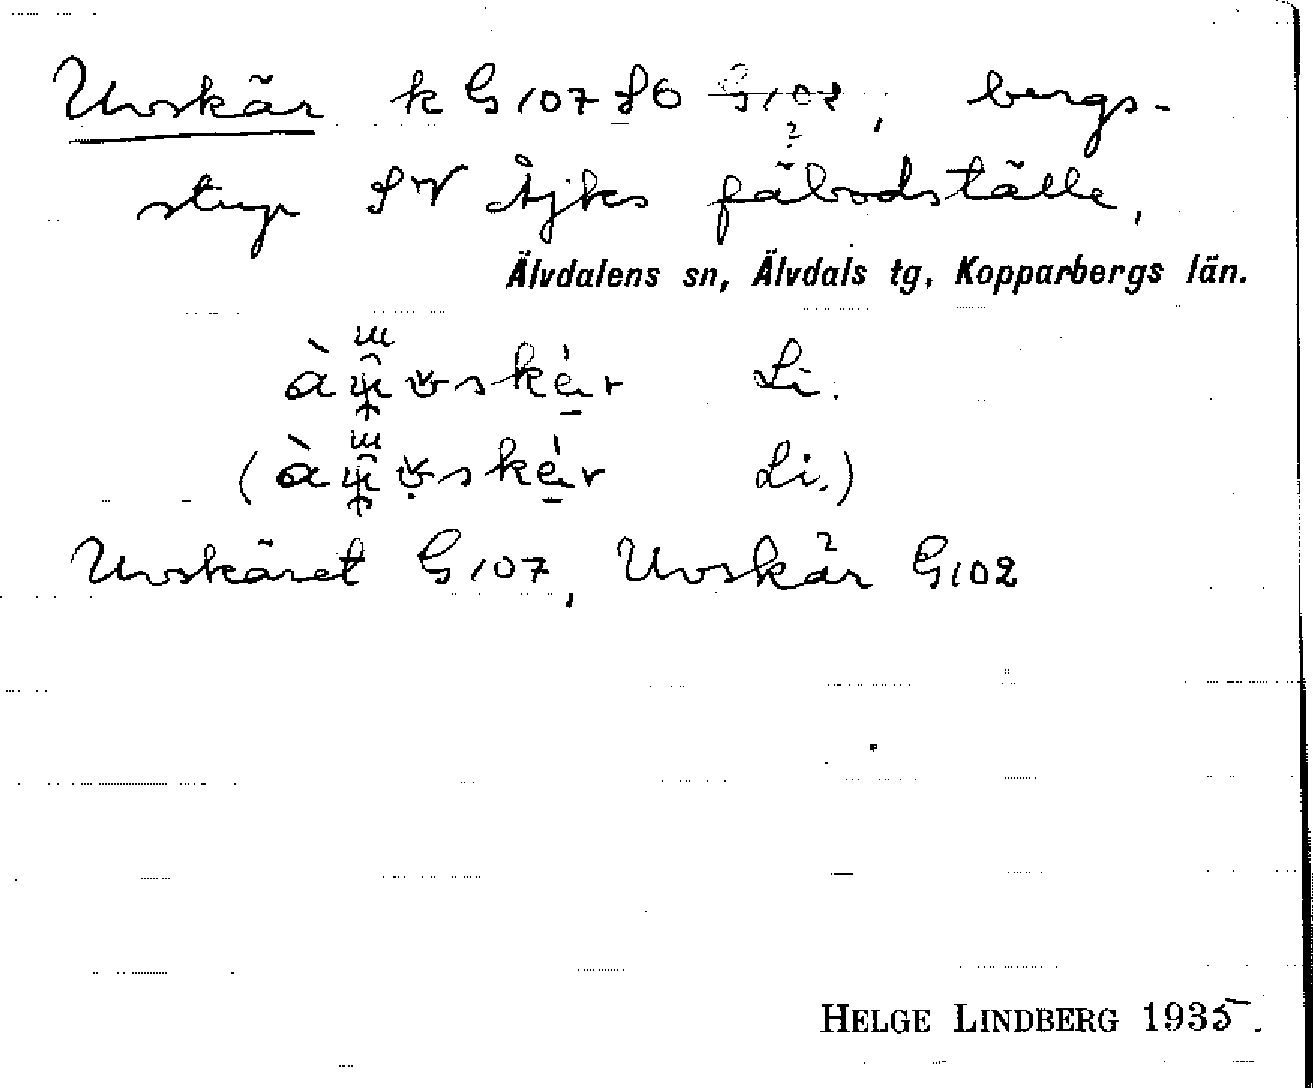 Uvskär k G107 SO G102, bergs-
stup SV Åjks fäbodställe,
Älvdalens sn, Älvdals tg, Kopparbergs län.
Li.
( Li.)
Uvskäret G107, Uvskär G102
HELGE LINDBERG 1935.